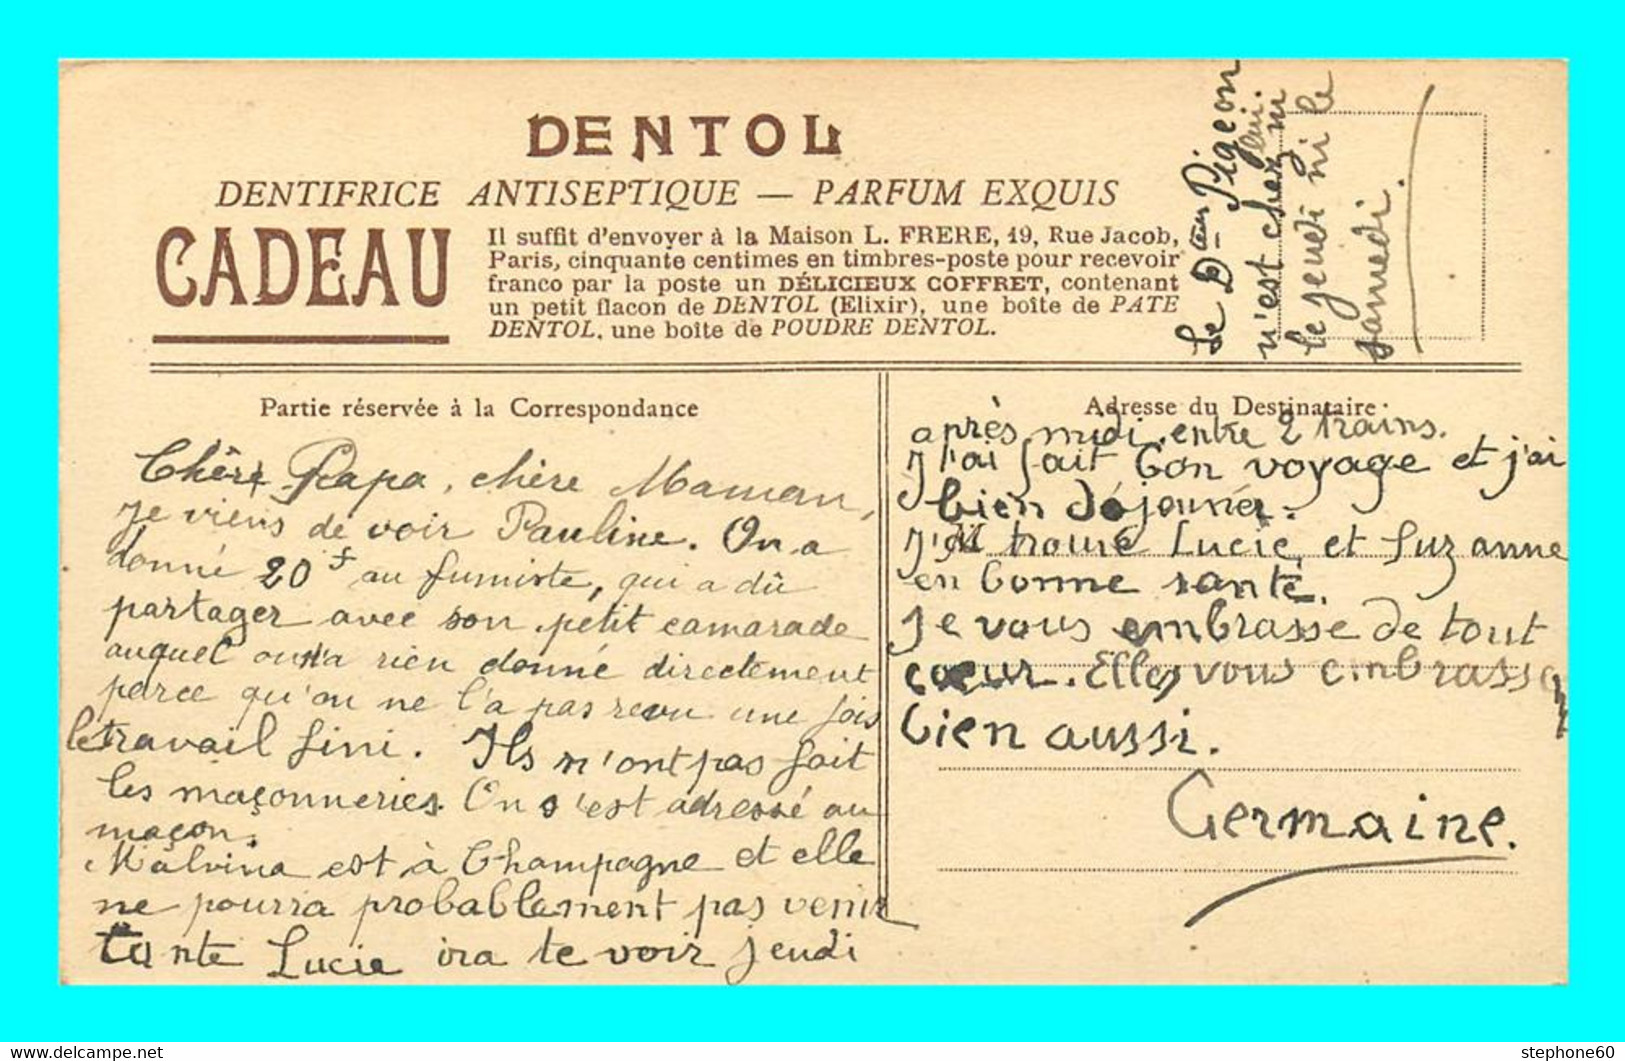 DENTOL
DENTIFRICE ANTISEPTIQUE — PARFUM EXQUIS
CADEAU
Il suffit d'envoyer à la Maison L. FRERE, 19, Rue Jacob,
Paris, cinquante centimes en timbres-poste pour recevoir
franco par la poste un DÉLICIEUX COFFRET, contenant
un petit flacon de DENTOL (Elixir), une boîte de PATE
DENTOL, une boîte de POUDRE DENTOL.
Le Dteur Pigeon
n'est chez lui. ni
le jeudi ni le
samedi.
Partie réservée à la Correspondance
Chère Papa, chère Maman,
Je viens de voir Pauline. On a
donné 20f au fumiste, qui a dû
partager avec son petit camarade
auquel on n'a rien donné directement
parce qu'on ne l'a pas revu une fois
le travail fini. Ils n'ont pas fait
les maçonneries. On s'est adressé au
maçon.
Malvina est à Champagne et elle
ne pourra probablement pas venir
tante Lucie ira te voir jeudi
Adresse du Destinataire
après midi entre 2 trains.
J'ai fait bon voyage et j'ai
bien déjeuner.
J'ai trouvé Lucie, et Suzanne
en bonne santé.
Je vous embrasse de tout
coeur. Elles vous embrassent
bien aussi.
Germaine.
stephone60